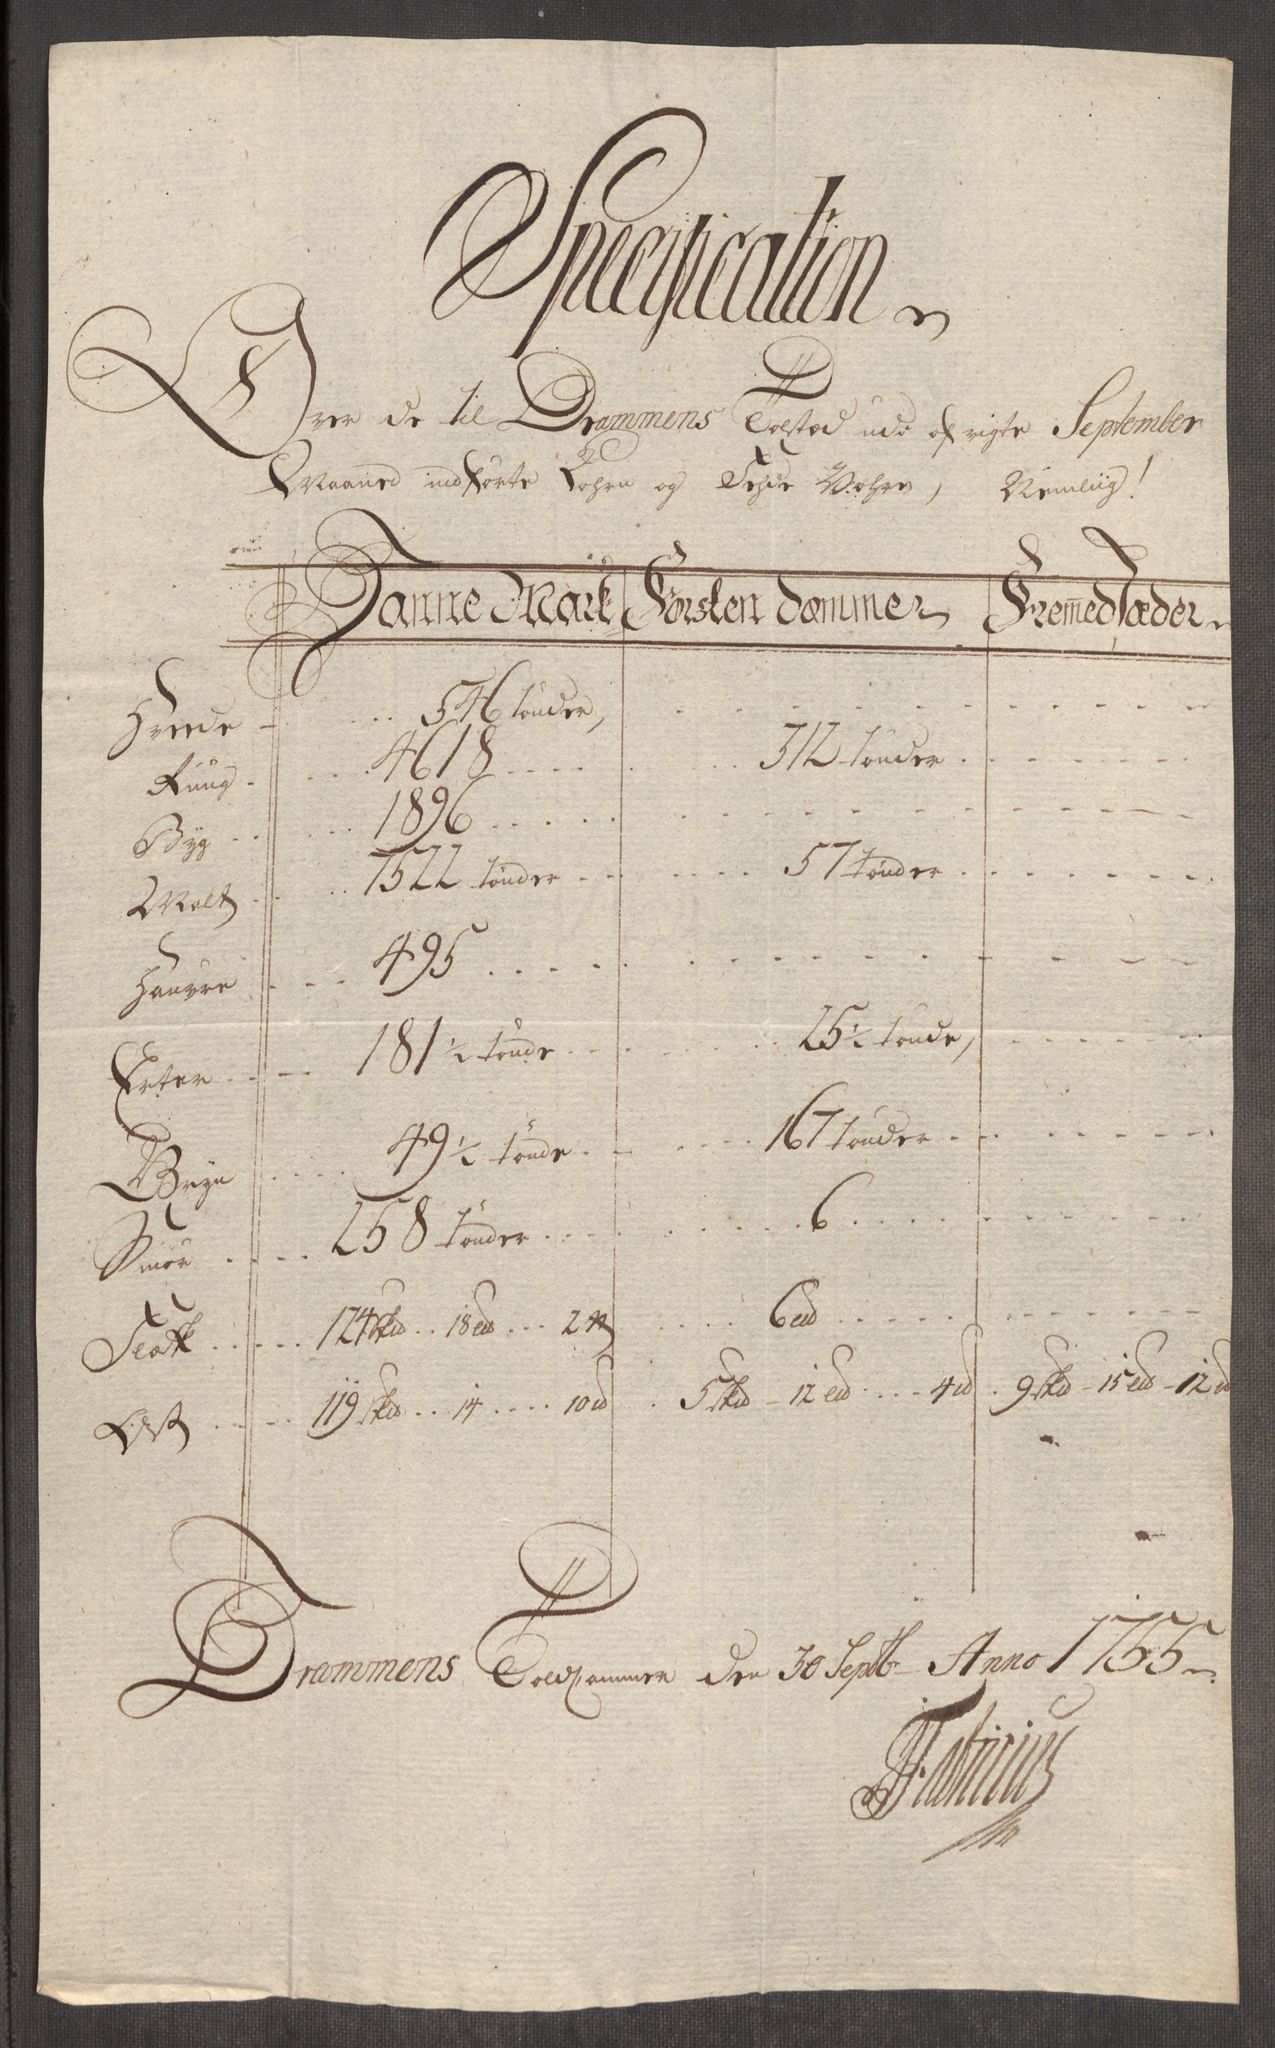 Specification
Over de til Drammens Tolsted udi afvigte September
Maaned indførte Kohrn og Fehde Vahre, Nemlig!
Danne Mark Førsten dømmer Fremed stæder
Hveede - ... 546 tønder,
Rug - ... 4618 ... 312 tønder
Byg ... 1896
Malt ... 1522 tønder ... 57 tønder
Haure ... 495
Erter ... 181 1/2 tønde ... 25 1/2 tønde,
Gryn ... 49 1/2 tønde ... 167 tønder
Smør ... 258 tønder ... 6
Fleesk ... 124 Skd .. 18 Ld ... 2 ℔ ... 6 Ld
Ost ... 119 Skd .. 14 ... 10 d . 5 Skd - 12 Ld ... 4 d . 9 Skd - 15 Ld - 12 d
Drammens Toldkammer den 30 Septb. Anno 1755
Fabricius